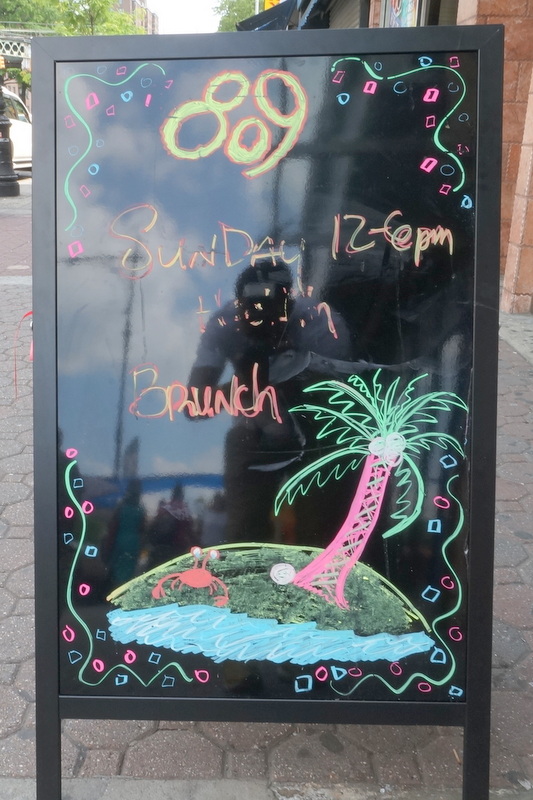 809
SUNDAY 12-6pm
BRUNCH